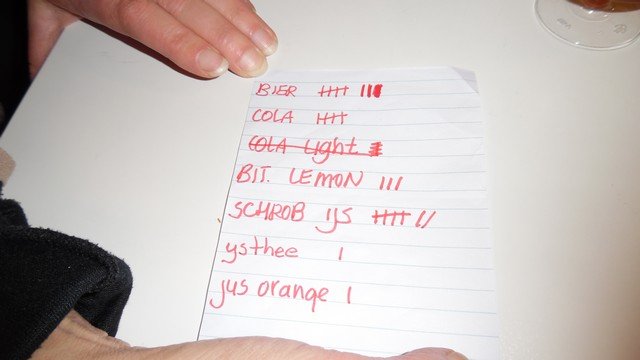 BIER 卌 III
COLA 卌
COLA Light
BIT. LEMON III
SCHROB IJS 卌 //
ysthee I
jus orange I